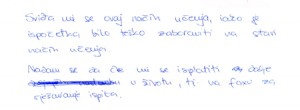 Sviđa mi se ovaj način učenja, iako je
ispočetka bilo teško zaboraviti na stari
način učenja.
Nadam se da će mi se isplatiti i dalje
u životu, ti na faxu za
rješavanje ispita.